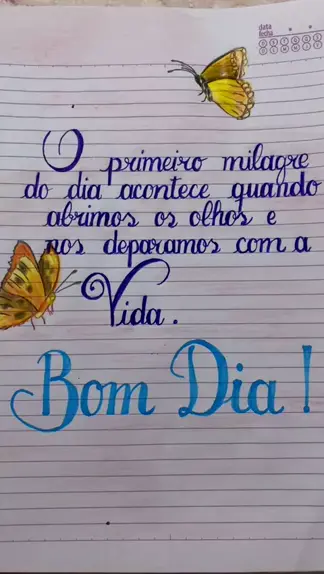 data
fecha
D S T Q Q S S
D L M M J V S
O primeiro milagre
do dia acontece quando
abrimos os olhos e
nos deparamos com a
Vida.
Bom Dia!